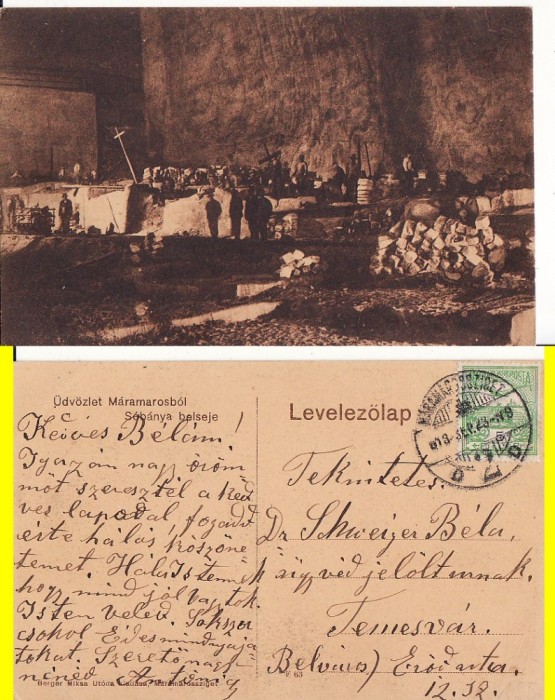 Üdvözlet Máramarosból
Sóbánya belseje
Levelezőlap
MÁRAMAROSSZIGET
Kedves Bélám!
Igazán nagy öröm
möt szereztél a ked
ves lapodal, fogadd
érte hálás köszöne
temet. Hála Istennek
hogy mind jól vagytok.
Isten veled. Sokszor
csokol Édes mindnyája
tokat. Szerető nagy
nénéd
Tekintetes
Dr Schweiger Béla,
ügyvéd jelölt urnak.
Temesvár.
Belváros
12. sz.
Berger Miksa Utóda kiadása, Máramarossziget
F 63